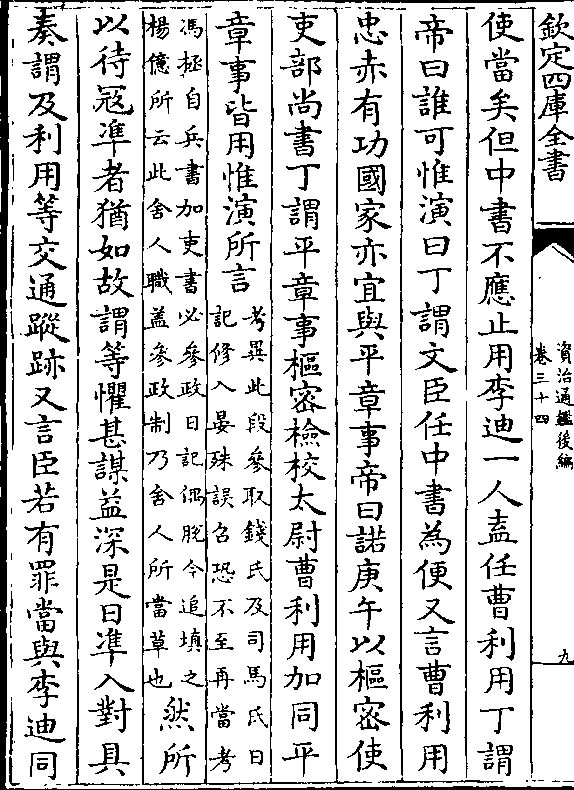 欽定四庫全書
資治通鑑後編
卷三十四
九
使當矣但中書不應止用李迪一人盍任曹利用丁謂
帝曰誰可惟演曰丁謂文臣任中書為便又言曹利用
忠赤有功國家亦宜與平章事帝曰諾庚午以樞密使
吏部尚書丁謂平章事樞密檢校太尉曹利用加同平
章事皆用惟演所言
考異此段參取錢氏及司馬氏日
記修入晏殊誤召恐不至再當考
馮拯自兵書加吏書必參政日記偶脫今追填之
楊億所云此舍人職蓋參政制乃舍人所當草也
然所
以待冦凖者猶如故謂等懼甚謀益深是日凖入對具
奏謂及利用等交通蹤跡又言臣若有罪當與李迪同